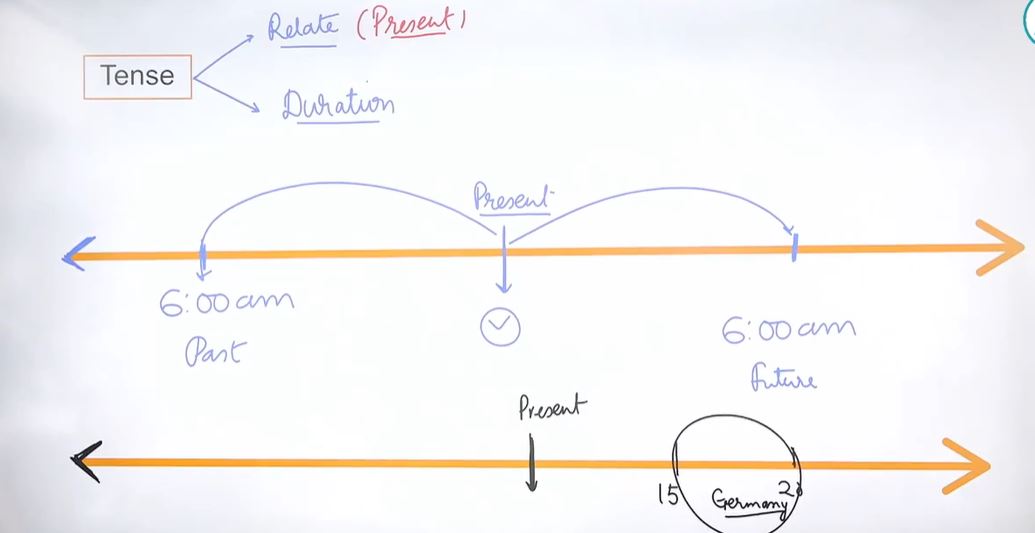 Relate (Present)
Tense
Duration
Present
6:00 am
Past
6:00 am
future
Present
15
Germany